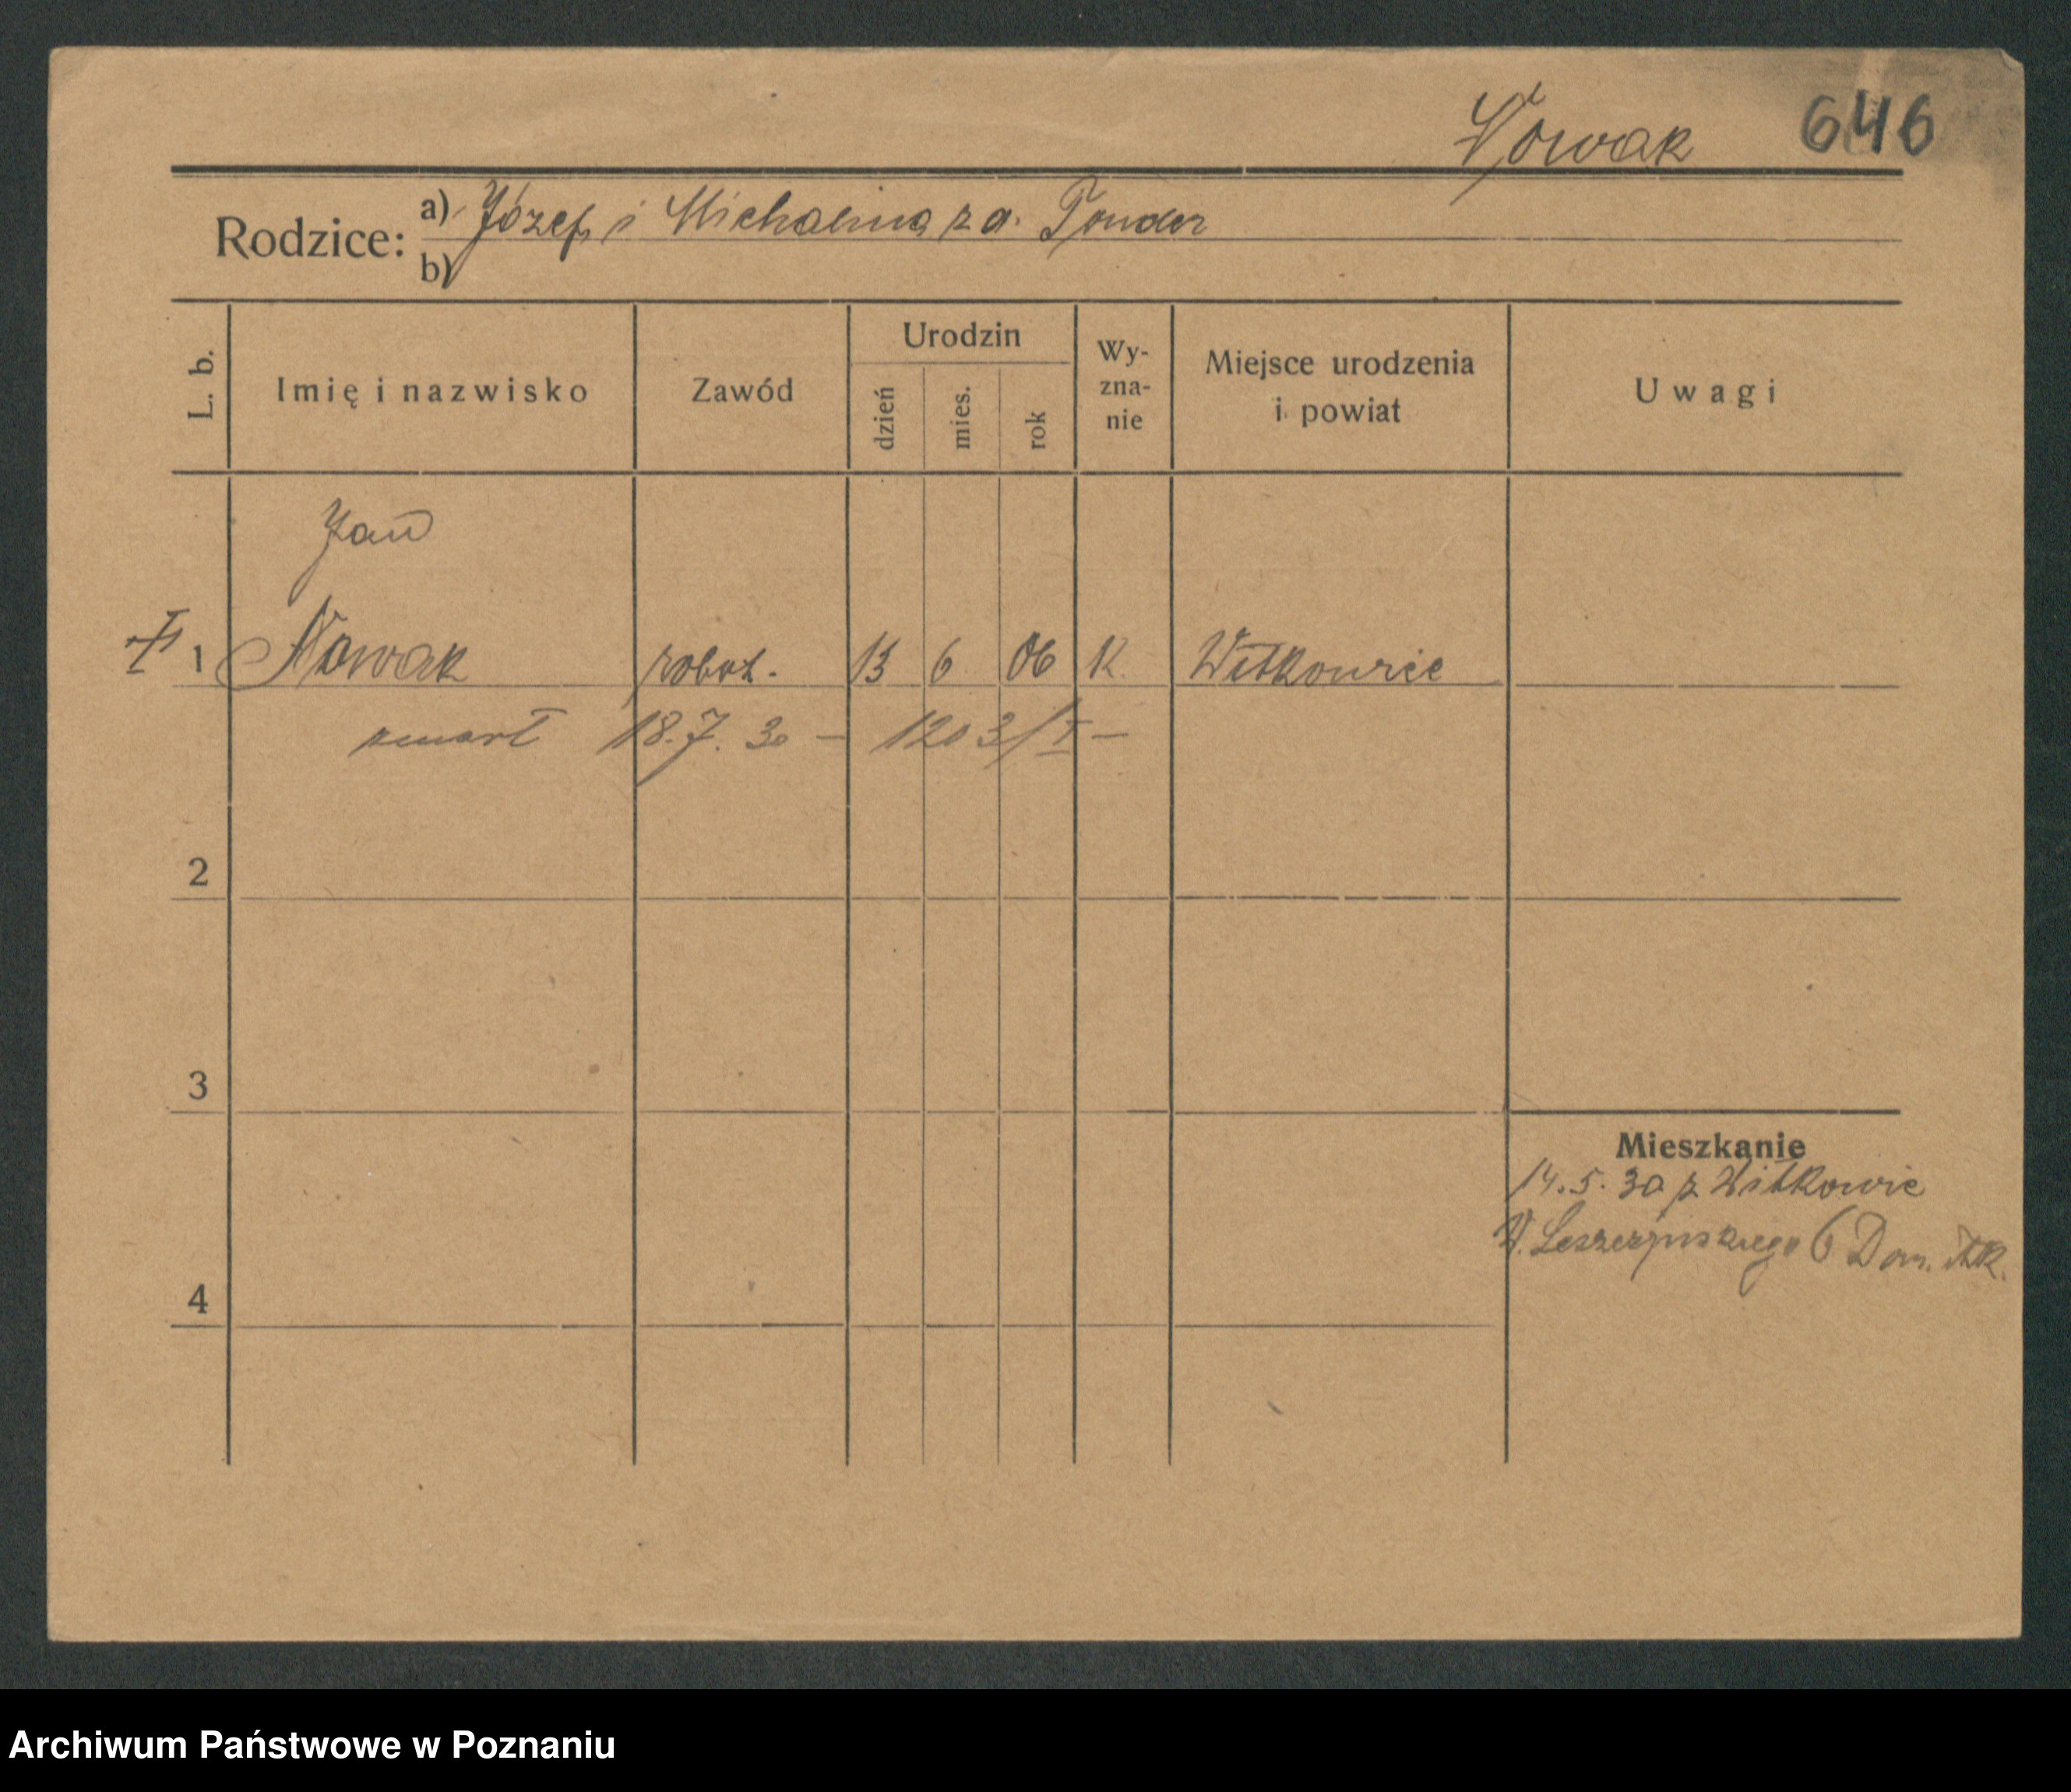 Nowak 646
Rodzice: a) Józef i Michalina z d. Tonder
b)
L. b. Imię i nazwisko Zawód Urodzin dzień mies. rok Wy-zna-nie Miejsce urodzenia i powiat Uwagi
Jan
1 Nowak robot. 13 6 06 K. Witkowice
zmarł 18.7.30 – 1203/I –
2
3
Mieszkanie
14.5.30 z Witkowic
W. Leszczyńskiego 6 Dom.
4
Archiwum Państwowe w Poznaniu